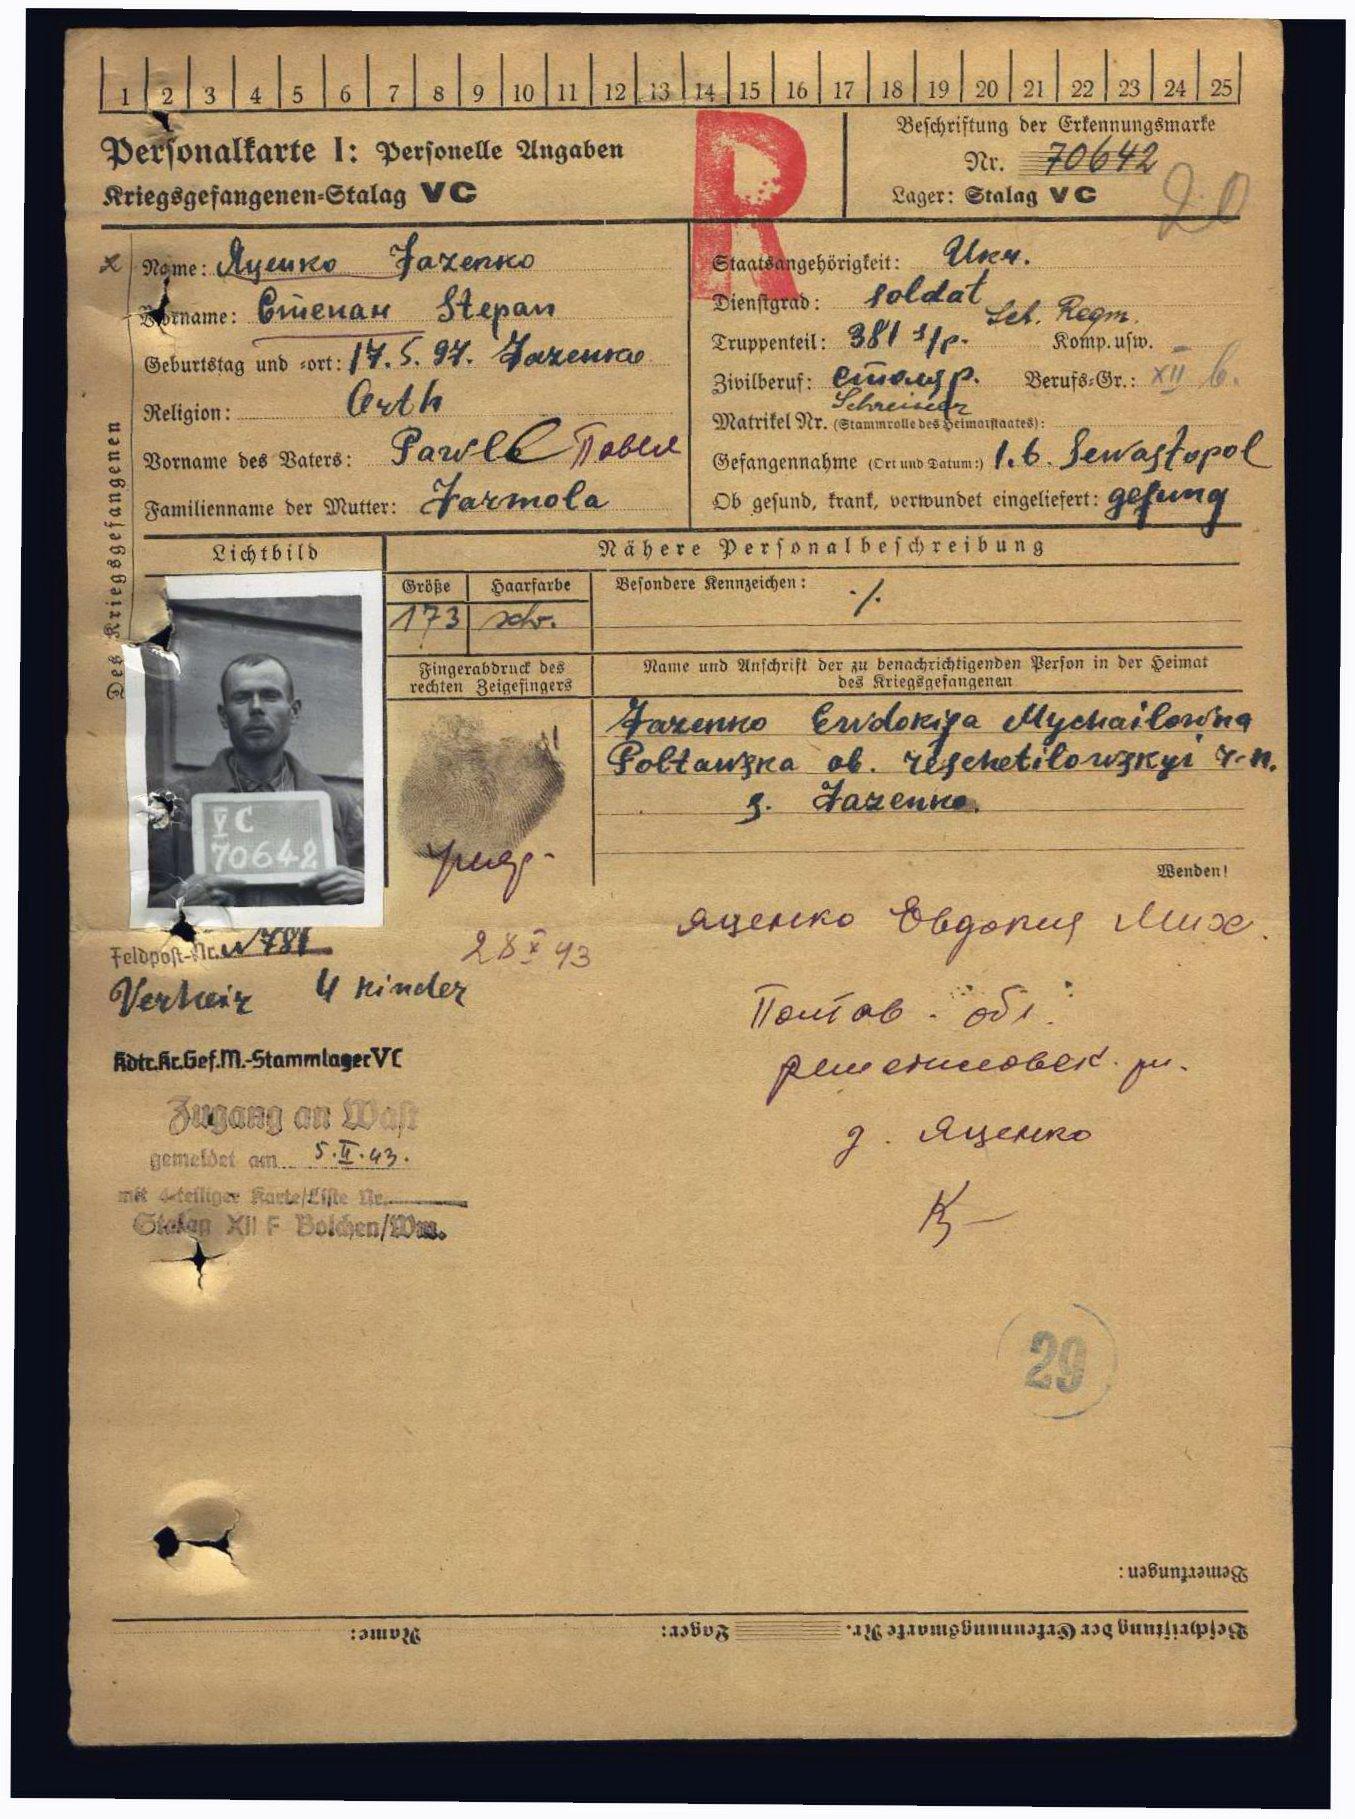 1 2 3 4 5 6 7 8 9 10 11 12 13 14 15 16 17 18 19 20 21 22 23 24 25
Personalkarte I: Personelle Angaben
Kriegsgefangenen=Stalag VC
R
Beschriftung der Erkennungsmarke
Nr. 70642
Lager: Stalag VC
20
Des Kriegsgefangenen
x Name: Яценко Jazenko
Vorname: Степан Stepan
Geburtstag und =ort: 17.5.97. Jazenko
Religion: Orth
Vorname des Vaters: Pawel Павел
Familienname der Mutter: Jarmola
Staatsangehörigkeit: Ukr.
Dienstgrad: soldat
Truppenteil: 381 Komp. usw.
Regm.
Zivilberuf: столяр. Berufs=Gr.: XII b.
Schreiner
Matrikel Nr. (Stammrolle des Heimatstaates):
Gefangennahme (Ort und Datum:) 1.6. Sewastopol
Ob gesund, krank, verwundet eingeliefert: gesung
Lichtbild
Nähere Personalbeschreibung
Größe Haarfarbe
173 schw.
Besondere Kennzeichen: ./.
Fingerabdruck des
rechten Zeigefingers
Name und Anschrift der zu benachrichtigenden Person in der Heimat
des Kriegsgefangenen
Jazenko Ewdokija Mychailowna
Poltawska ob. reschetilowskyi r-n.
s. Jazenko.
V C
70642
Wenden!
Feldpost-Nr.
28 X 43
Яценко Евдокия Мих.
Verheir 4 kinder
Полтав. обл.
Kdtr.Kr.Gef.M.-Stammlager VC
решетиловск. рн.
Zugang an Wast
gemeldet am 5.II.43.
д. Яценко
mit 4-teiliger Karte/Liste Nr.
Stalag XII F Bolchen/Wm.
29
Bemerkungen:
Beschriftung der Erkennungsmarke Nr. Lager: Name: